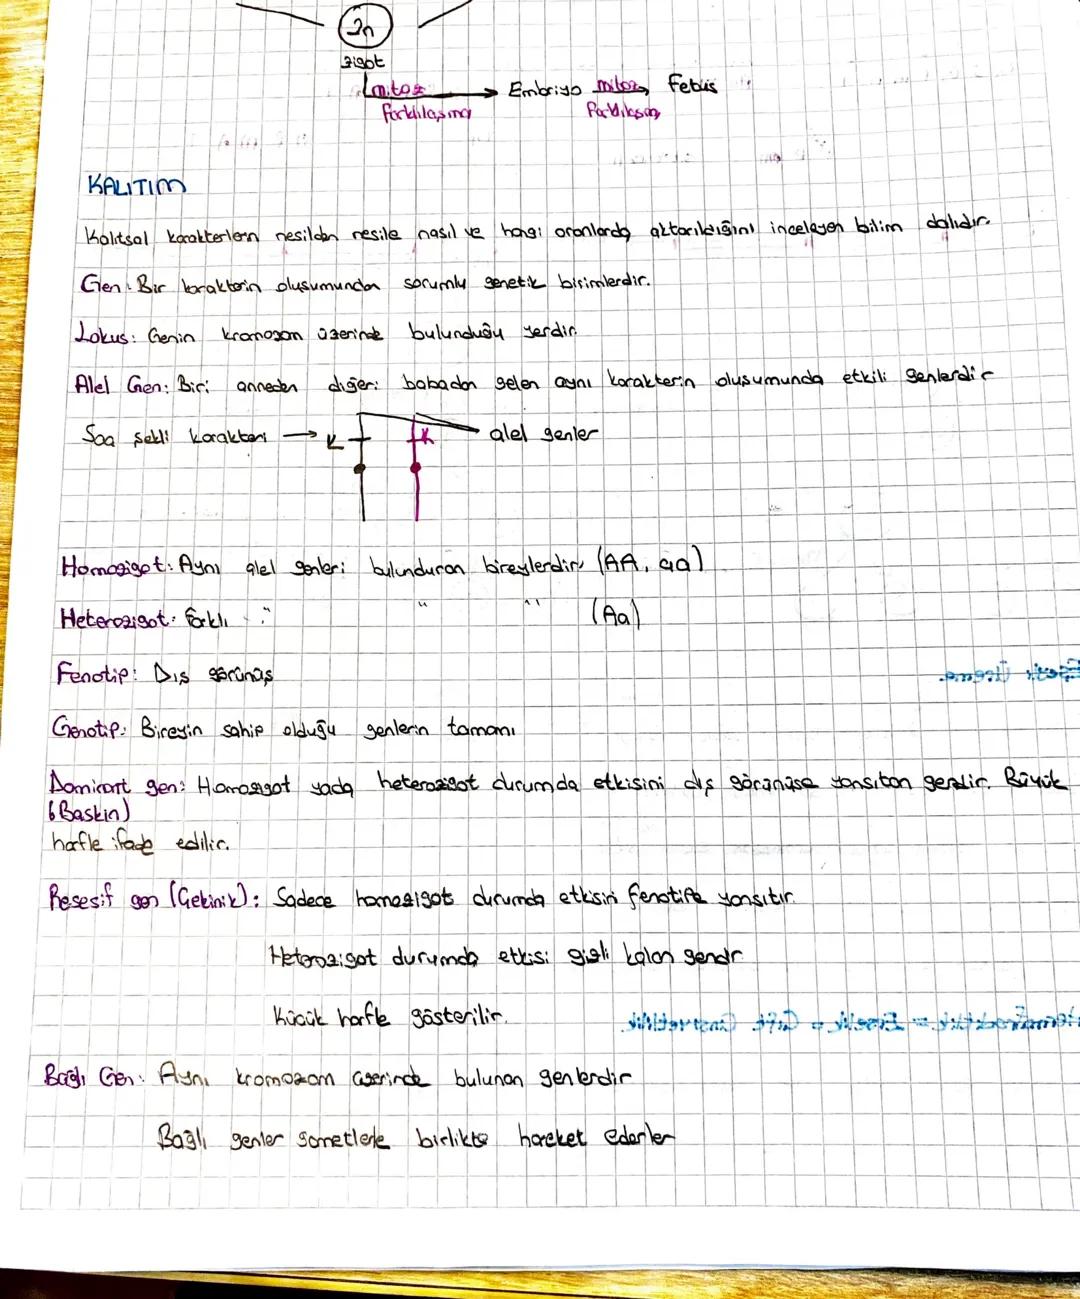 2n
zigot
mitoz → Embriyo mitoz Fetüs
farklılaşma farklılaşma
KALITIM
Kalıtsal karakterlerin nesilden nesile nasıl ve hangi oranlarda aktarıldığını inceleyen bilim dalıdır.
Gen: Bir karakterin oluşumundan sorumlu genetik birimlerdir.
Lokus: Genin kromozom üzerinde bulunduğu yerdir.
Alel Gen: Biri anneden diğeri babadan gelen aynı karakterin oluşumunda etkili genlerdir
Saç şekli karakteri → K K alel genler
Homozigot: Aynı alel genleri bulunduran bireylerdir. (AA, aa)
Heterozigot: farklı " " " (Aa)
Fenotip: Dış görünüş
Genotip: Bireyin sahip olduğu genlerin tamamı
Dominant gen: Homozigot yada heterozigot durumda etkisini dış görünüşe yansıtan gendir. Büyük
(Baskın)
harfle ifade edilir.
Resesif gen (Çekinik): Sadece homozigot durumda etkisini fenotipte yansıtır.
Heterozigot durumda etkisi gizli kalan gendir
Küçük harfle gösterilir.
Bağlı Gen: Aynı kromozom üzerinde bulunan genlerdir
Bağlı genler gametlerle birlikte hareket ederler